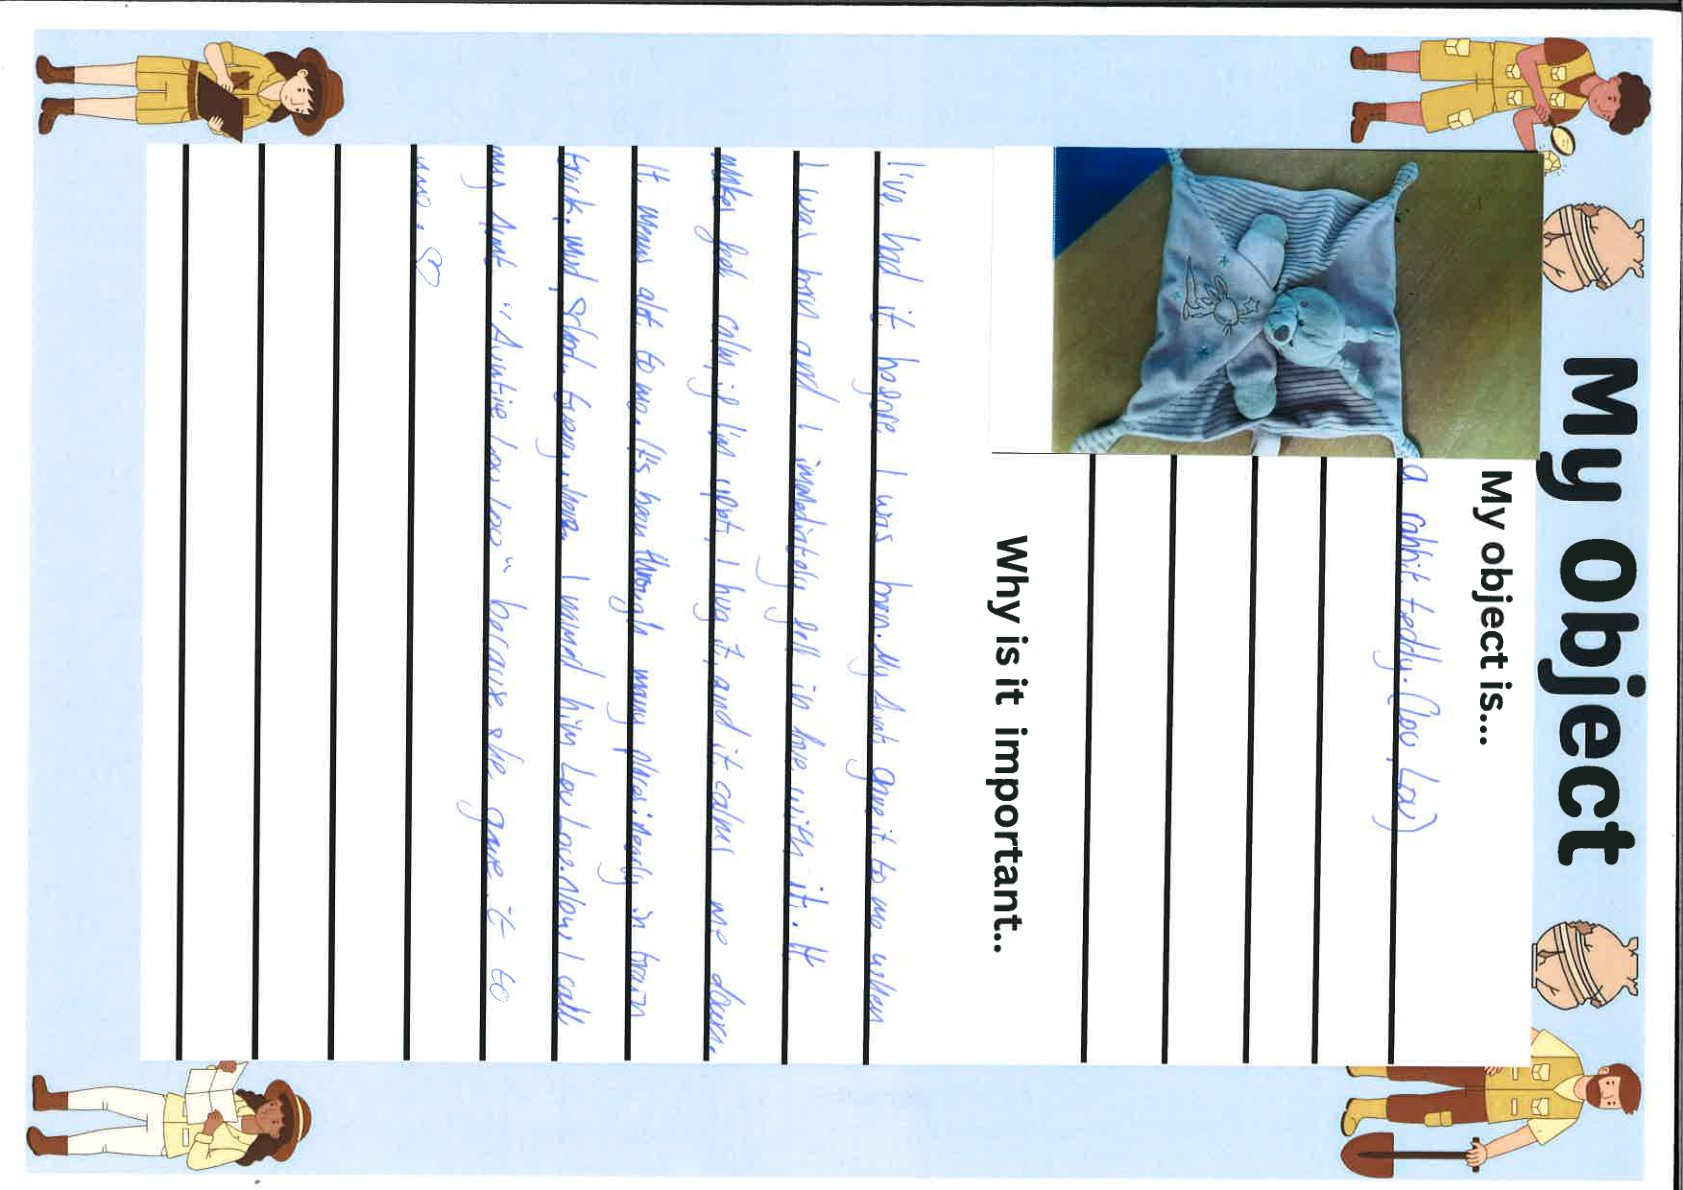 My Object
My object is...
a rabbit teddy. (Lou Lou)
Why is it important..
I've had it before I was born. My Aunt gave it to me when
I was born and I immediately fell in love with it. It
makes feel calm, if I'm upset, I hug it, and it calms me down.
It means alot to me. It's been through many places: nearly in train
track, mud, school. Everywhere. I named him Lou Lou. Now I call
my Aunt "Auntie Lou Lou" because she gave it to
me. ♡